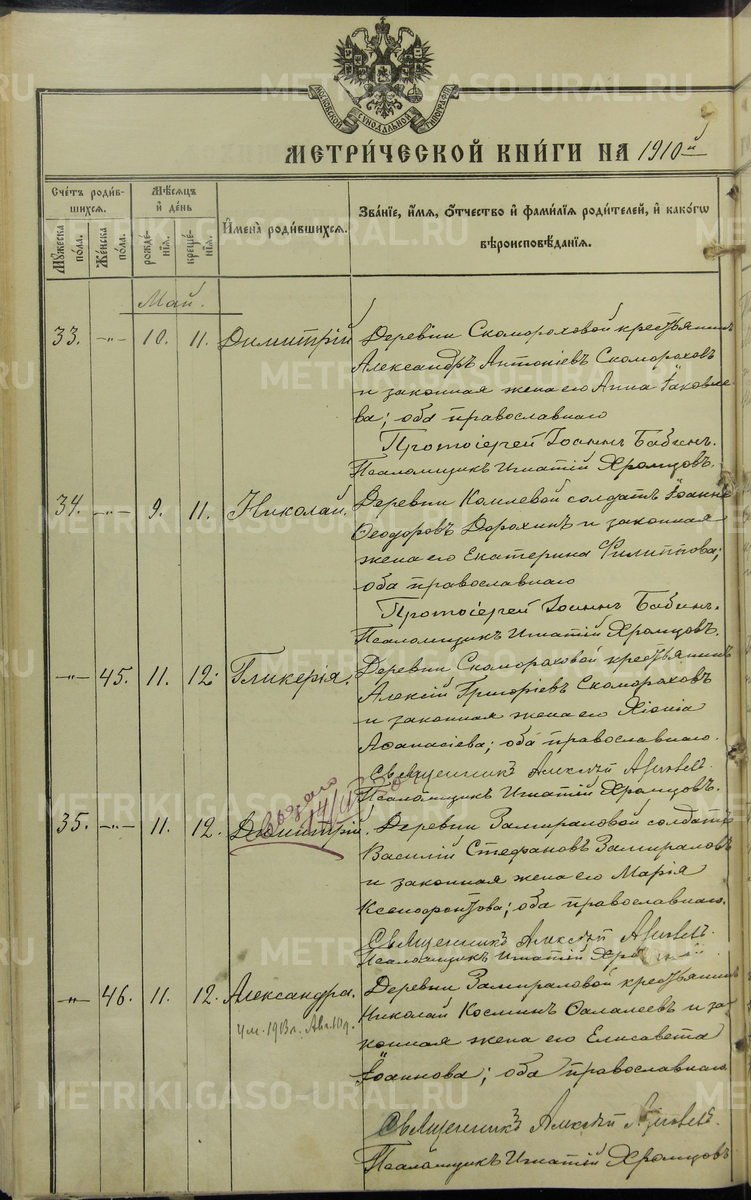 МОСКОВСКОЙ СѴНОДАЛЬНОЙ ТИПОГРАФІИ
МЕТРИ́ЧЕСКОЙ КНИ́ГИ НА 1910й
Сче́тъ роди́вшихся.
Мѣ́сяцъ и҆ де́нь
И҆мена̀ роди́вшихся.
Зва́нїе, и҆́мѧ, ѻ҆́тчество и҆ фами́лїѧ роди́телей, и҆ како́гѡ вѣроисповѣ́данїѧ.
Мꙋ́жеска по́ла.
Же́нска по́ла.
рожде́нїѧ.
креще́нїѧ.
Май.
33. -"- 10. 11. Димитрій
Деревни Скомороховой крестьянинъ
Александръ Антоніевъ Скомороховъ
и законная жена его Анна Іаковле
ва; оба православнаго
Протоіерей Іоаннъ Бабинъ.
Псаломщикъ Игнатій Хромцовъ.
34. -"- 9. 11. Николай.
Деревни Комлевой солдатъ Іоаннъ
Ѳеодоровъ Дорохинъ и законная
жена его Екатерина Филиппова;
оба православнаго
Протоіерей Іоаннъ Бабинъ.
Псаломщикъ Игнатій Хромцовъ.
-"- 45. 11. 12. Гликерія.
Деревни Скомороховой крестьянинъ
Алексій Григоріевъ Скомороховъ
и законная жена его Хіонія
Аѳанасіева; оба православнаго.
Священникъ Алексій
Псаломщикъ Игнатій Хромцовъ.
35. -"- 11. 12. Димитрій.
Деревни Замираловой солдатъ
Василій Стефановъ Замираловъ
и законная жена его Марія
Ксенофонтова; оба православнаго.
Священникъ Алексій
Псаломщикъ Игнатій
-"- 46. 11. 12. Александра.
Ум. 1913 г. Авг. 10 д.
Деревни Замираловой крестьянинъ
Николай Косминъ Ѳалалеевъ и за
конная жена его Елисавета
Іоаннова; оба православнаго
Священникъ Алексій
Псаломщикъ Игнатій Хромцовъ
METRIKI.GASO-URAL.RU